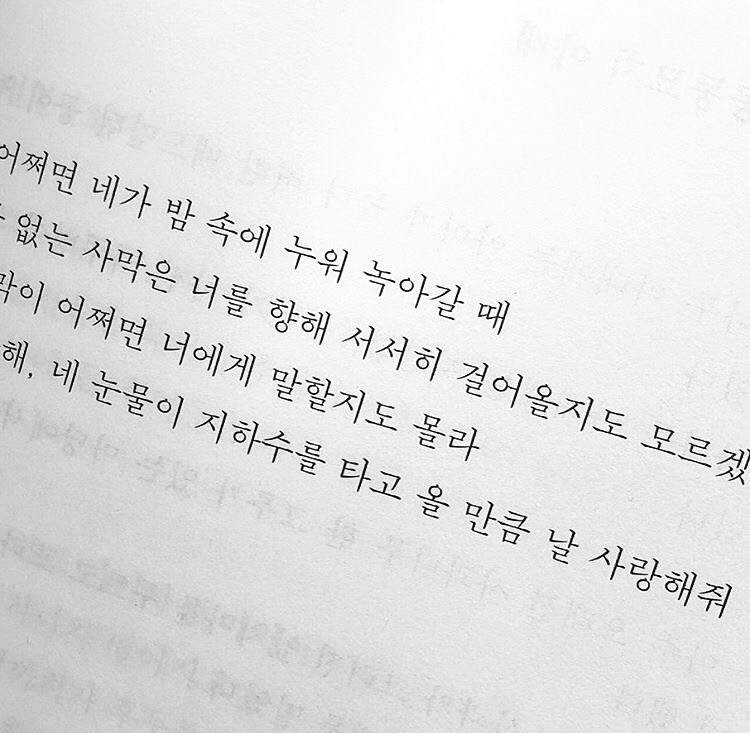 어쩌면 네가 밤 속에 누워 녹아갈 때
없는 사막은 너를 향해 서서히 걸어올지도 모르겠
막이 어쩌면 너에게 말할지도 몰라
해, 네 눈물이 지하수를 타고 올 만큼 날 사랑해줘